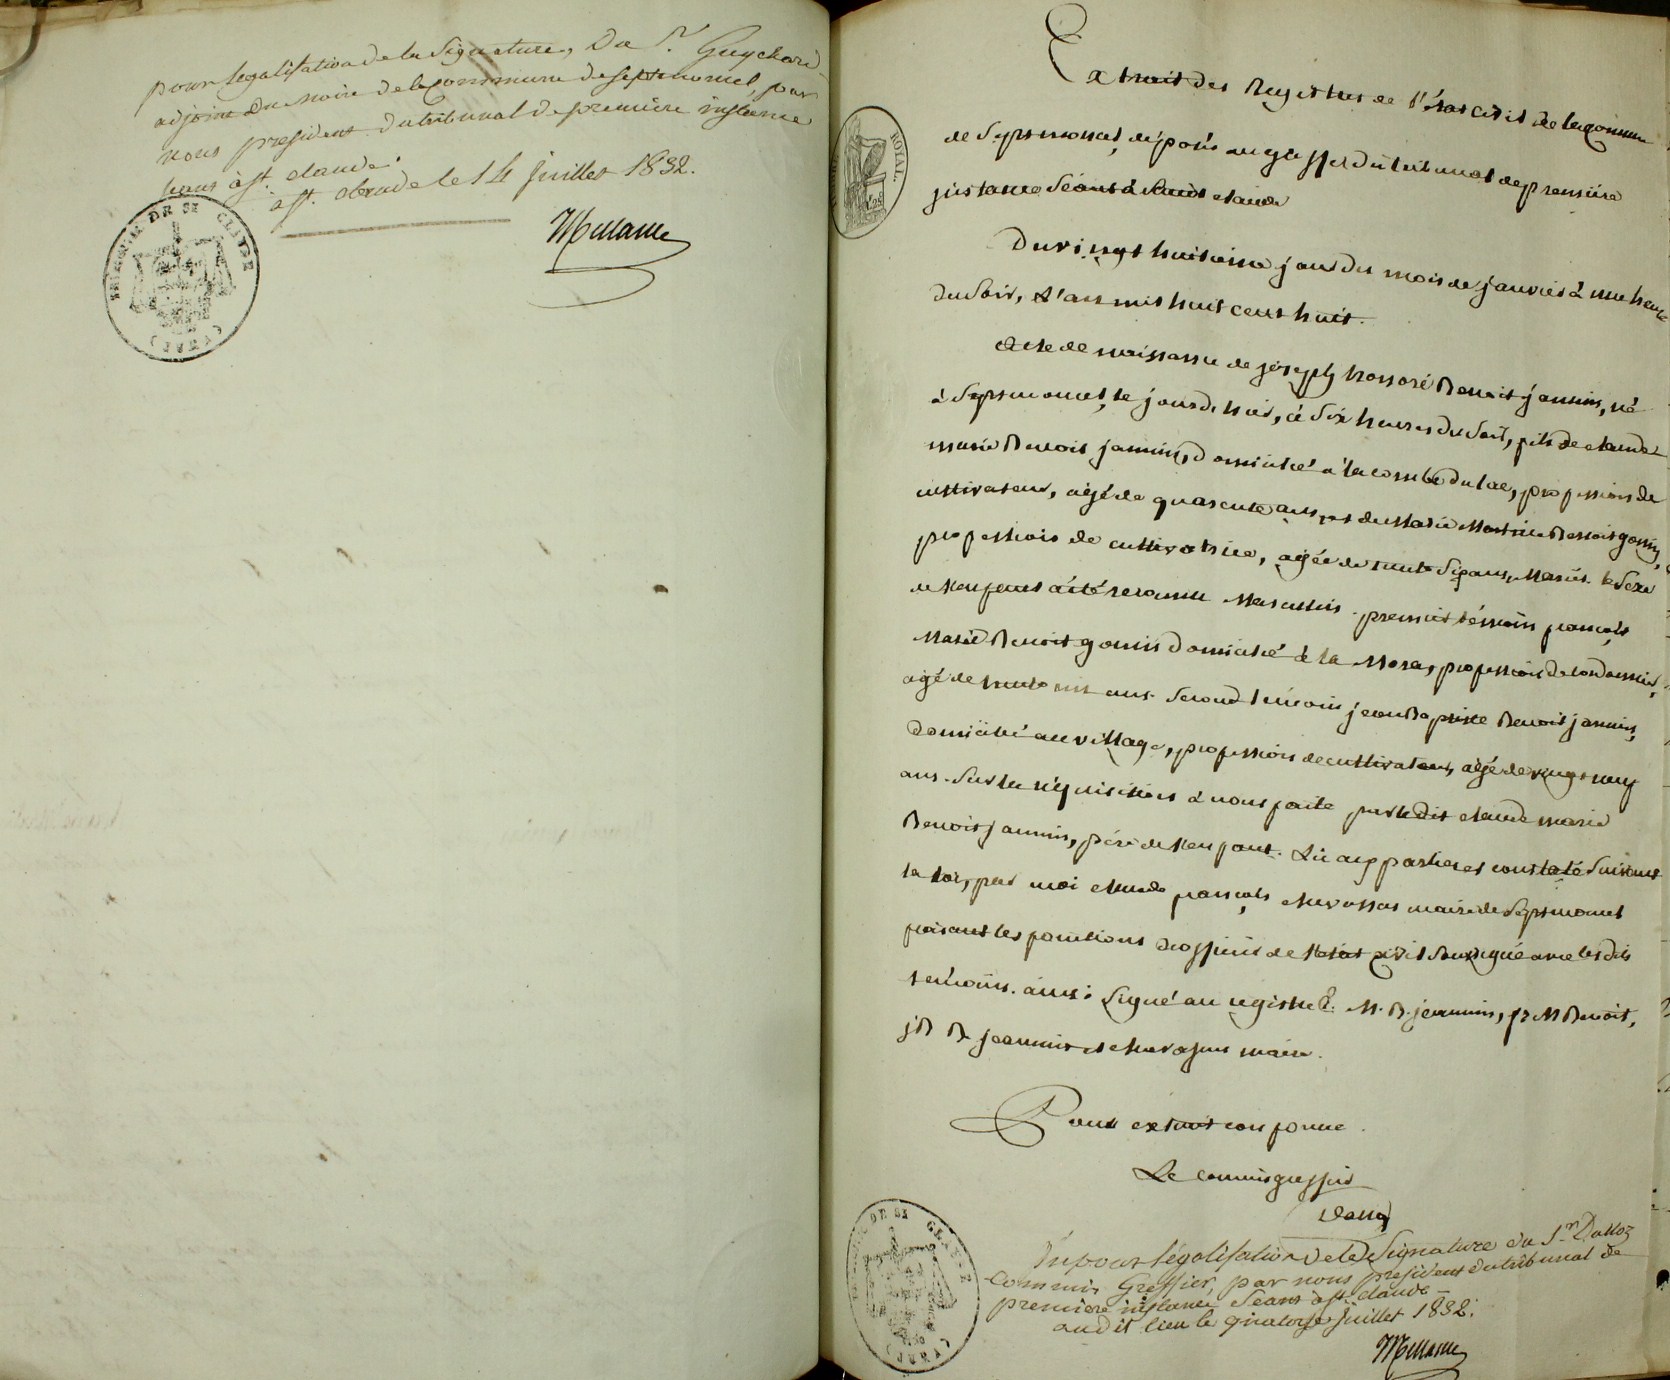 pour légalisation de la signature, Du Sr. Guychard
adjoint Du maire de la Commune de septmoncel, par
nous président du tribunal de première instance
séant à st. claude.
à st. claude le 14 juillet 1832.
TRIBUNAL DE ST CLAUDE
(JURA)
Extrait des Registres de l'état civil de la commune
de Septmoncel, déposés au greffe du tribunal de première
instance séant à Saint claude
ROYAL.
Du vingt huitieme jour du mois de janvier à une heure
du soir, L'an mil huit cent huit.
Acte de naissance de joseph honoré Benoit jannin, né
à Septmoncel, le jour d'hier, à six heures du soir, fils de claude
marie Benoit jannin, domicilié à la combe du lac, profession de
cultivateur, agé de quarante ans, et de Marie Benoit gonin,
profession de cultivatrice, agée de trente six ans, Mariés. le sexe
de l'enfant a été reconnu Masculin. premier témoin françois
Marie Benoit gonin domicilié à la Mora, profession de cordonnier,
agé de trente ans. Second témoin jean Baptiste Benoit jannin,
domicilié au village, profession de cultivateur, agé de vingt neuf
ans. Sur la réquisition à nous faite par le dit claude marie
Benoit jannin, père de l'enfant. Lu aux parties et constaté suivant
la loi, par moi claude françois chevassus maire de Septmoncel
faisant les fonctions d'officier de l'état civil soussigné avec les dits
témoins. ainsi signé au registre C. M. B. jeannin, f M Benoit,
j B B jeannin et chevassus maire.
Pour extrait conforme.
Le commis greffier
Dalloz
Vu pour légalisation de la Signature du Sr. Dalloz
Commis Greffier, par nous président du tribunal de
première instance séant à st. claude
au dit lieu le quatorze juillet 1832.
DE ST CLAUDE
(JURA)